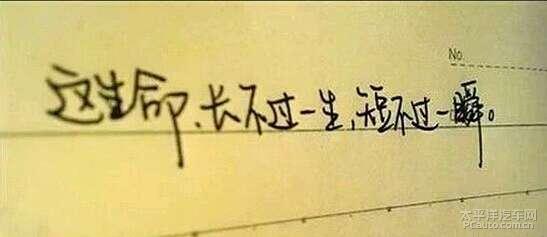 No.
这生命、长不过一生,短不过一瞬。
太平洋汽车网
PCauto.com.cn